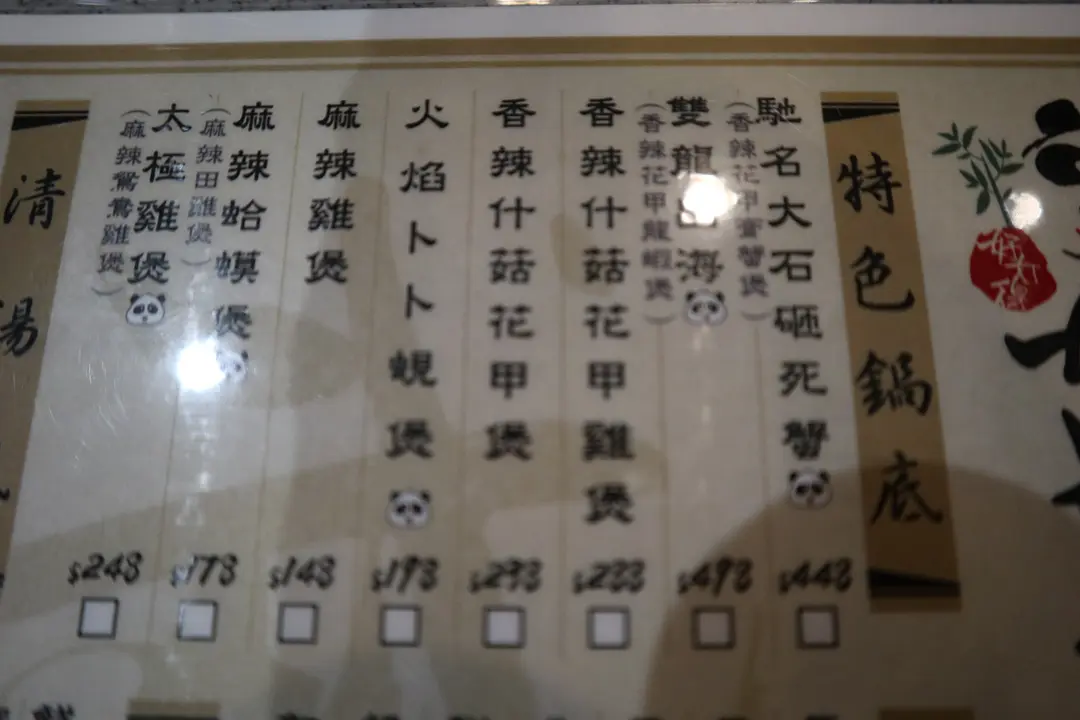 特色鍋底
馳名大石砸死蟹
(香辣花甲膏蟹煲)
$448
雙龍出海
(香辣花甲龍蝦煲)
$498
香辣什菇花甲雞煲
$288
香辣什菇花甲煲
$298
火焰卜卜蜆煲
$198
麻辣雞煲
$148
麻辣蛤蟆煲
(麻辣田雞煲)
$178
太極雞煲
(麻辣鴛鴦雞煲)
$248
清湯